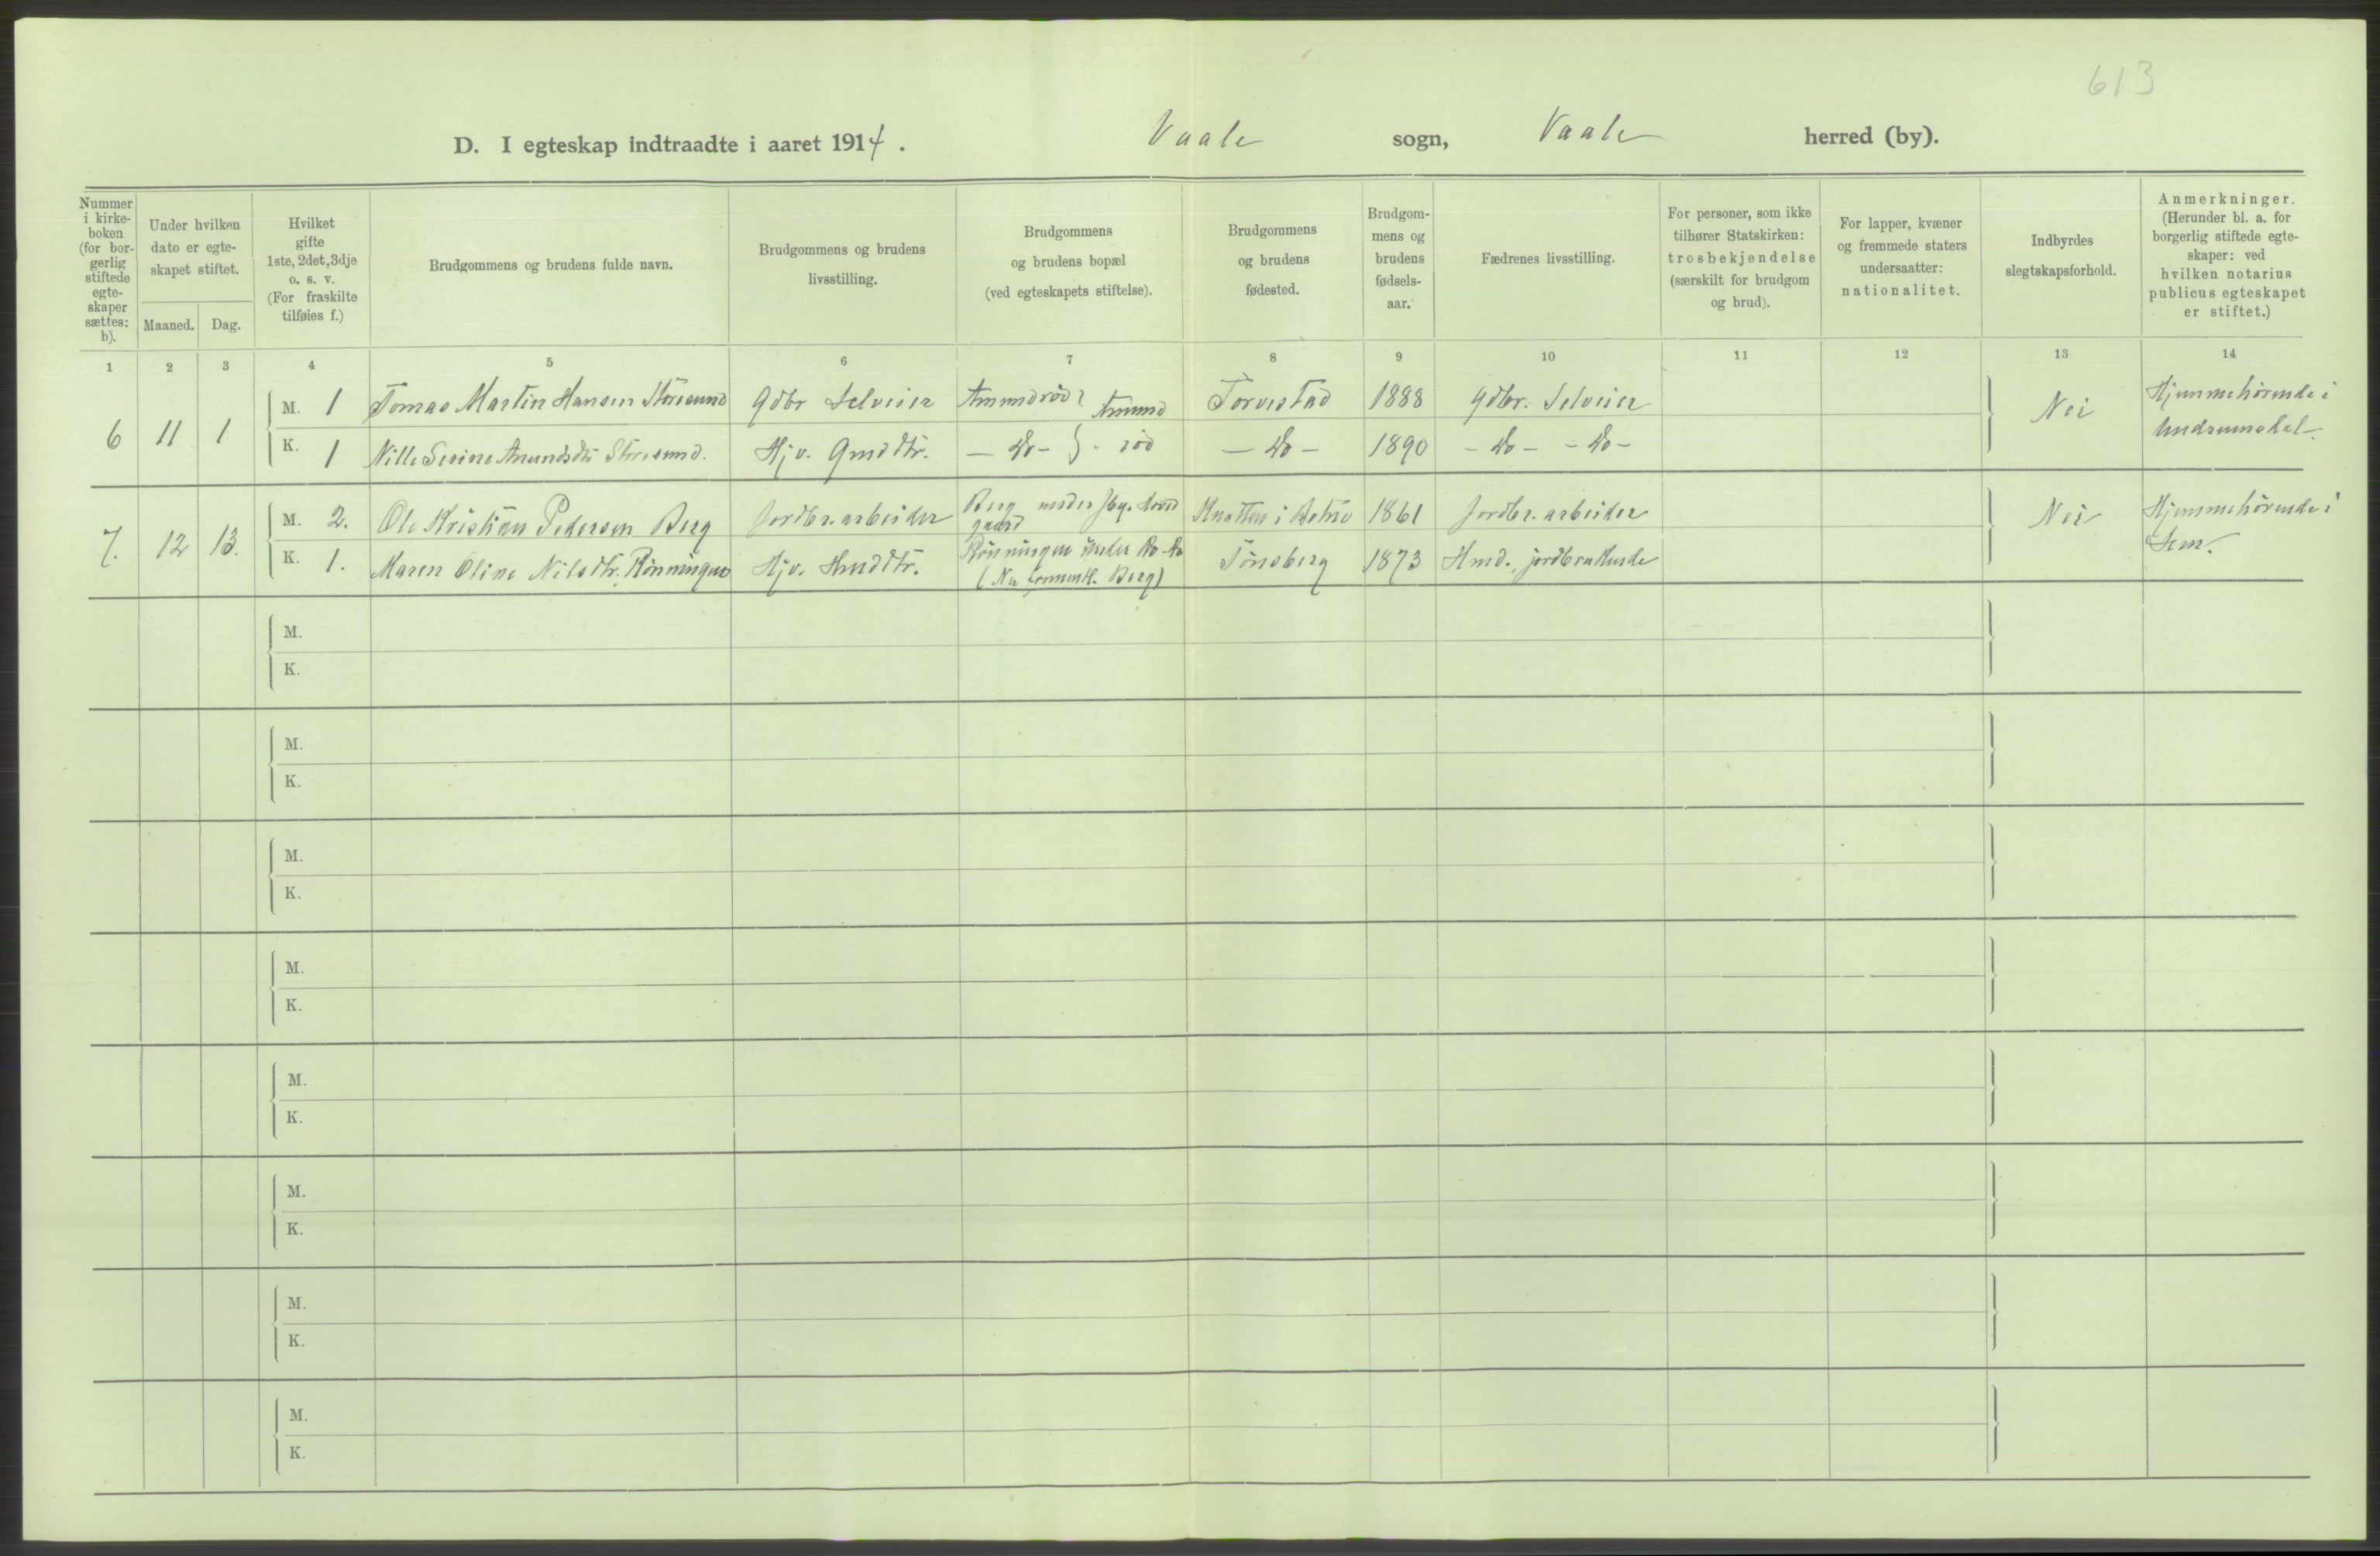 613
D. I egteskap indtraadte i aaret 1914. Vaale sogn, Vaale herred (by).
Nummer
i kirke-
boken
(for bor-
gerlig
stiftede
egte-
skaper
sættes:
b).
Under hvilken
dato er egte-
skapet stiftet.
Maaned. Dag.
Hvilket
gifte
1ste, 2det, 3dje
o. s. v.
(For fraskilte
tilføies f.)
Brudgommens og brudens fulde navn.
Brudgommens og brudens
livsstilling.
Brudgommens
og brudens bopæl
(ved egteskapets stiftelse).
Brudgommens
og brudens
fødested.
Brudgom-
mens og
brudens
fødsels-
aar.
Fædrenes livsstilling.
For personer, som ikke
tilhører Statskirken:
trosbekjendelse
(særskilt for brudgom
og brud).
For lapper, kvæner
og fremmede staters
undersaatter:
nationalitet.
Indbyrdes
slegtskapsforhold.
Anmerkninger.
(Herunder bl. a. for
borgerlig stiftede egte-
skaper: ved
hvilken notarius
publicus egteskapet
er stiftet.)
1 2 3 4 5 6 7 8 9 10 11 12 13 14
6 11 1 M. 1 Tomas Martin Hansen Störesund Gdbr Selveier Amundröd Amund Torvestad 1888 Gdbr. Selveier Nei Hjemmehörende i
K. 1 Nille Serine Amundsdtr Störesund. Hjv. Gmddtr. — do — röd — do — 1890 - do - - do -
7. 12 13. M. 2. Ole Kristian Pedersen Berg Jordbr. arbeider Berg under gaard Knatten i Botne 1861 Jordbr. arbeider Nei Hjemmehörende i
Sem.
K. 1. Maren Oline Nilsdtr. Rönningen Hjv. Hmddtr. Rönningen under do - do Tönsberg 1873 Hmd., jordbrukende
(Nu Berg)
M.
K.
M.
K.
M.
K.
M.
K.
M.
K.
M.
K.
M.
K.
M.
K.